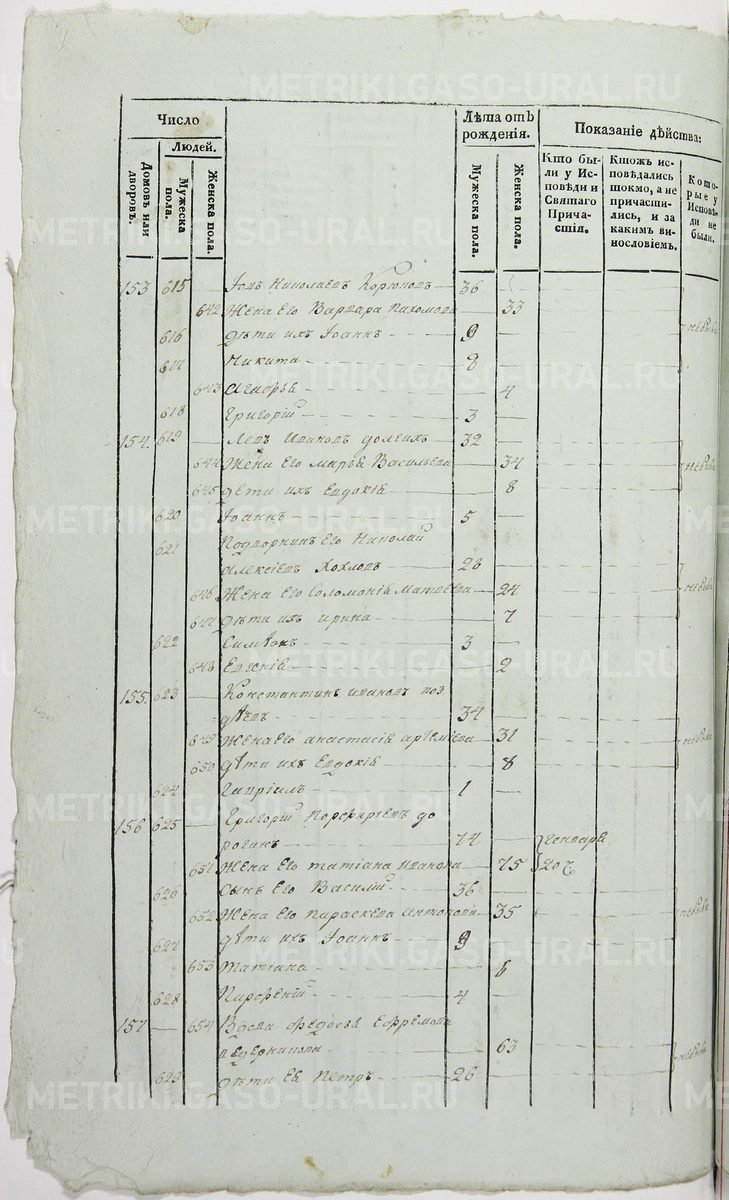 Число
Людей.
Домовъ или дворовъ.
Мужеска пола.
Женска пола.
Лѣта отъ рожденія.
Мужеска пола.
Женска пола.
Показаніе дѣйства:
Кто были у Исповѣди и Святаго Причастія.
Ктожъ исповѣдались токмо, а не причастились, и за какимъ винословіемъ.
Которые у Исповѣди не были.
153 615 — Іовъ Николаевъ 36
642 Жена Его Варвара Пахомова 33
616 Дѣти ихъ Іоаннъ 9 небыли
617 Никита 8
643 Агафья 4
618 Григорій 3
154. 619 Левъ Ивановъ Долгихъ 32
644 Жена Его Марья Васильева 34 небыли
645 Дѣти ихъ Евдокія 8
620 Іоаннъ 5
621 Подворникъ Его Николай
Алексіевъ Хохловъ 28
646 Жена Его Соломонія Матвеева 24 небыли
647 Дѣти ихъ Ирина 7
622 Симѣонъ 3
648 Евгенія 2
155. 623 Константинъ Ивановъ Поз
дѣевъ 34
649 Жена Его Анастасія Артеміева 31 небыли
650 Дѣти ихъ Евдокія 8
624 Гавріилъ 1
156 625 — Григорій Порфиріевъ До
рогинъ 74 Генваря
651 Жена Его Татіана Иванова 75 20
626 Сынъ Его Василій 36
652 Жена Его Параскева Антонова 35 небыли
627 Дѣти ихъ Іоаннъ 9
653 Татіана 6
628 Парфеній 4
157 — 654 Вдова Федосья Ефремова
63 небыли
629 Дѣти Ея Петръ 26
METRIKI.GASO-URAL.RU